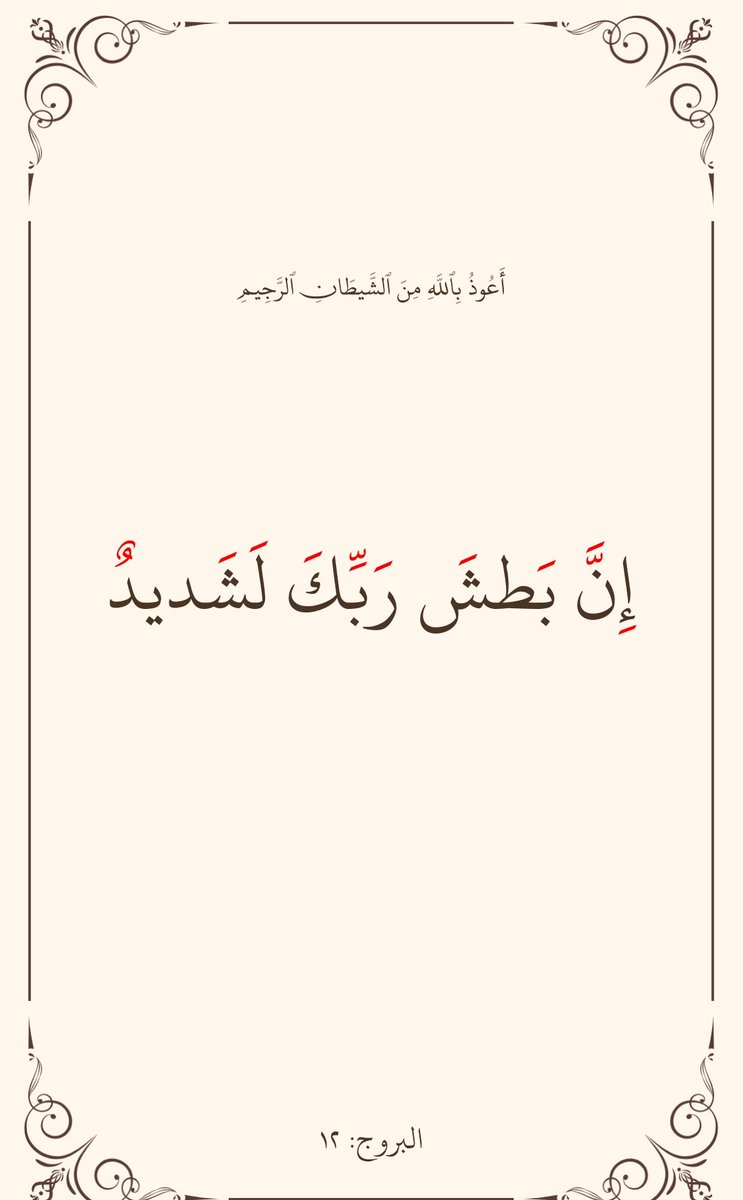 أَعُوذُ بِٱللَّهِ مِنَ ٱلشَّيطَانِ ٱلرَّجِيمِ
إِنَّ بَطشَ رَبِّكَ لَشَديدٌ
البروج: ١٢